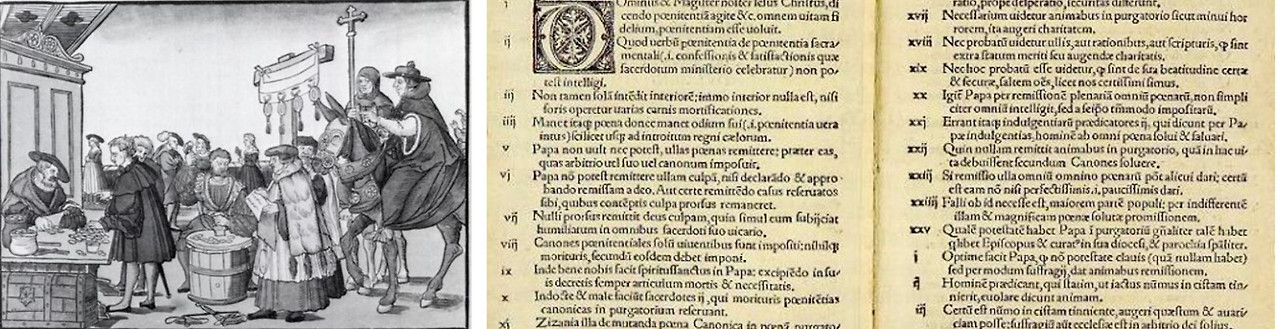 i
Ominus & Magister noster Iesus Christus, di
cendo pœnitentiã agite &c. omnem uitam fi
delium, pœnitentiam esse uoluit.
ij Quod uerbũ pœnitentia de pœnitentia sacra-
mentali (.i. confessionis & satisfactionis quæ
sacerdotum ministerio celebratur) non po-
test intelligi.
iij Non tamen solã intẽdit interiorẽ: immo interior nulla est, nisi
foris operetur uarias carnis mortificationes.
iiij Manet itaq; pœna donec manet odium sui (.i. pœnitentia uera
intus) scilicet usq; ad introitum regni cælorum.
v Papa non uult nec potest, ullas pœnas remittere: præter eas,
quas arbitrio uel suo uel canonum imposuit.
vj Papa nõ potest remittere ullam culpã, nisi declarãdo & appro-
bando remissam a deo. Aut certe remittẽdo casus reseruatos
sibi, quibus contẽptis culpa prorsus remaneret.
vij Nulli prorsus remittit deus culpam, quin simul eum subijciat
humiliatum in omnibus sacerdoti suo uicario.
viij Canones pœnitentiales solũ uiuentibus sunt impositi: nihilq;
morituris, secundũ eosdem debet imponi.
ix Inde bene nobis facit spiritussanctus in Papa: excipiẽdo in su-
is decretis semper articulum mortis & necessitatis.
x Indocte & male faciũt sacerdotes ij, qui morituris pœnitẽtias
canonicas in purgatorium reseruant.
xj Zizania illa de mutanda pœna Canonica in pœnã purgato-
ratio, prope desperatio, securitas differunt.
xvij Necessarium uidetur animabus in purgatorio sicut minui hor
rorem, ita augeri charitatem.
xviij Nec probatũ uidetur ullis, aut rationibus, aut scripturis, q sint
extra statum meriti seu augendæ charitatis.
xix Nec hoc probatũ esse uidetur, q sint de sua beatitudine certæ
& securæ, saltem oẽs, licet nos certissimi simus.
xx Igit Papa per remissionẽ plenariã omniũ pœnarũ, non simpli
citer omniũ intelligit, sed a seipso tñmodo impositarũ.
xxj Errant itaq; indulgentiarũ prædicatores ij, qui dicunt per Pa-
pæ indulgentias, hominẽ ab omni pœna solui & saluari.
xxij Quin nullam remittit animabus in purgatorio, quã in hac ui-
ta debuissent secundum Canones soluere.
xxiij Si remissio ulla omniũ omnino pœnarũ pót alicui dari; certũ
est eam nõ nisi perfectissimis .i. paucissimis dari.
xxiiij Falli ob id necesse est, maiorem partẽ populi: per indifferentẽ
illam & magnificam pœnæ solutæ promissionem.
xxv Qualẽ potestatẽ habet Papa ĩ purgatoriũ gñaliter talẽ habet
qlibet Episcopus & curatꝰ in sua diocesi, & parochia spãliter.
i Optime facit Papa, q nõ potestate clauis (quã nullam habet)
sed per modum suffragij, dat animabus remissionem.
ij Hominẽ prædicant, qui statim, ut iactus nũmus in cistam tin-
nierit, euolare dicunt animam.
iij Certũ est nũmo in cistam tinniente, augeri quæstum & auari-
ciam posse: suffragiũ aũt ecclesiæ est in arbitrio dei solius.